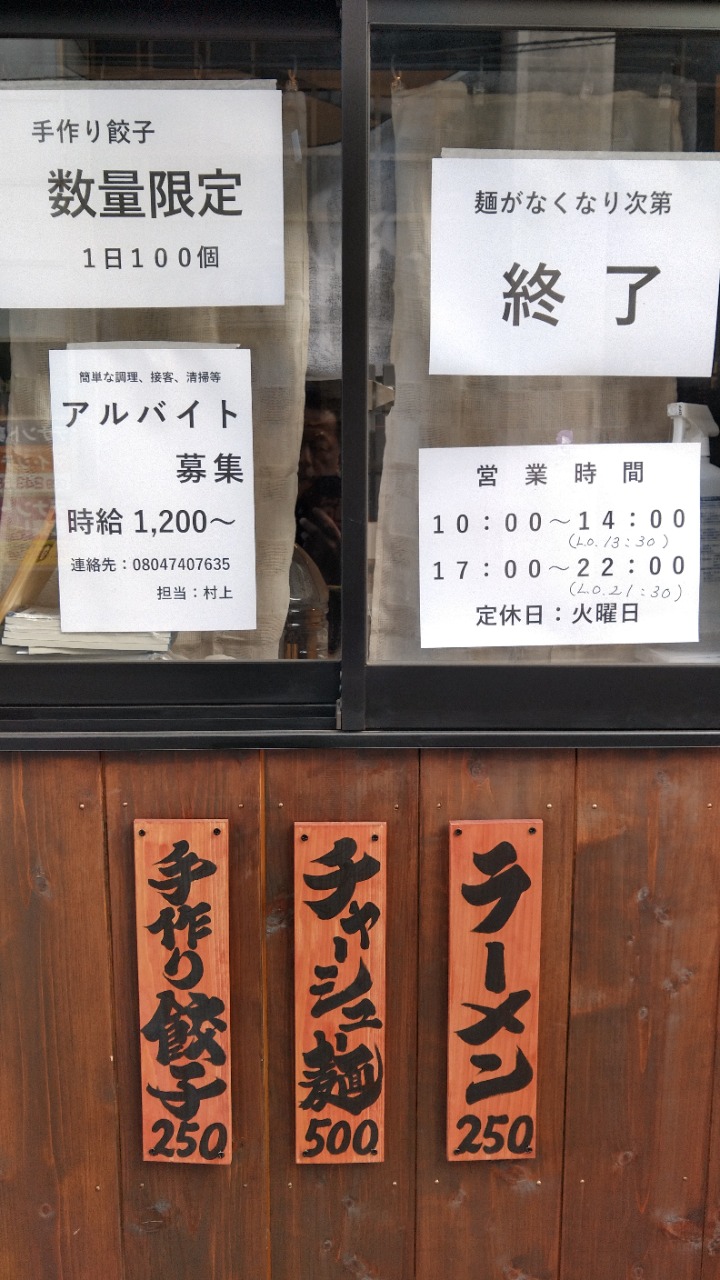 手作り餃子
数量限定
1日100個
簡単な調理、接客、清掃等
アルバイト
募集
時給 1,200～
連絡先：08047407635
担当：村上
麺がなくなり次第
終 了
営 業 時 間
10：00～14：00
(L.O.13：30)
17：00～22：00
(L.O.21：30)
定休日：火曜日
ラーメン
250
チャーシュー麺
500
手作り餃子
250